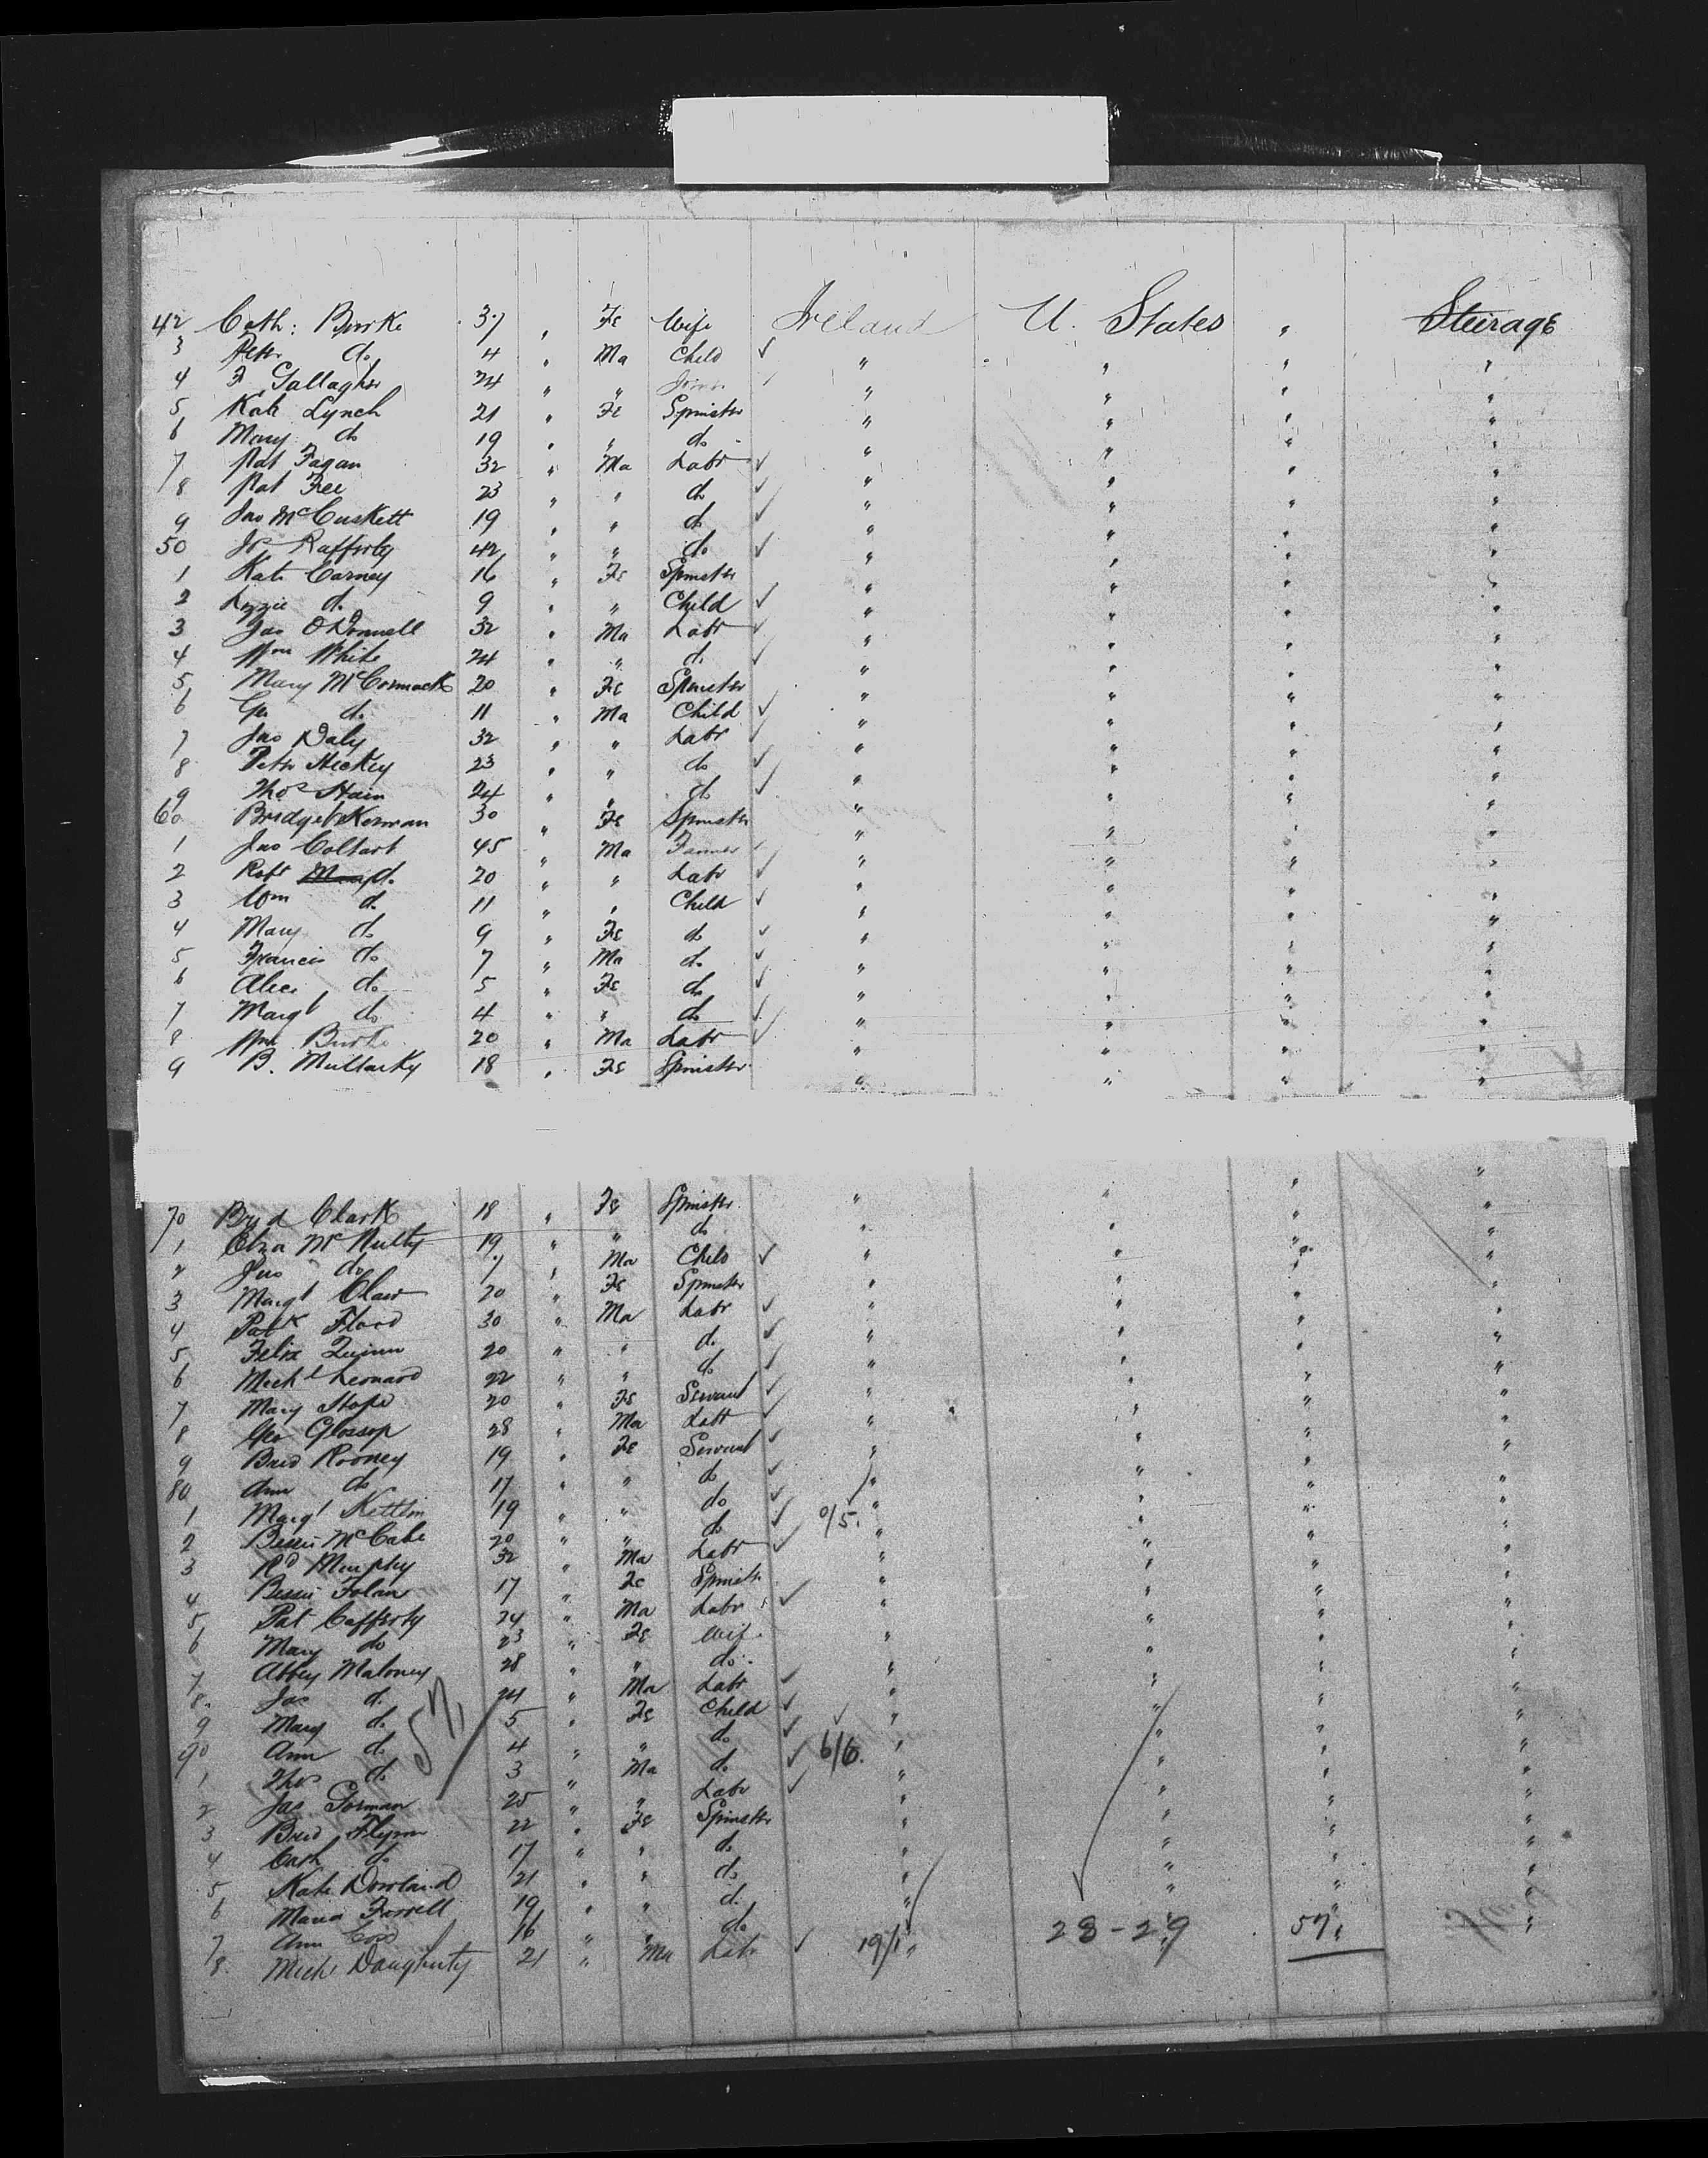 42 Cath: Burke 37 " Fe Wife Ireland U. States " Steirage
3 Peter do 4 " Ma Child ✓ " " " "
4 F Gallagher 24 " " " " " "
5 Kate Lynch 21 " Fe Spinster " " " "
6 Mary do 19 " " do " " " "
7 Pat Fagan 32 " Ma Labr ✓ " " " "
8 Pat Fee 23 " " do ✓ " " " "
9 Jno McCuskett 19 " " do ✓ " " " "
50 Jos Rafferty 42 " " do ✓ " " " "
1 Kate Carney 16 " Fe Spinster " " " "
2 Lizzie do 9 " " Child ✓ " " " "
3 Jas O'Donnell 32 " Ma Labr ✓ " " " "
4 Wm White 24 " " do ✓ " " " "
5 Mary McCormack 20 " Fe Spinster " " " "
6 Geo do 11 " Ma Child ✓ " " " "
7 Jno Daly 32 " " Labr ✓ " " " "
8 Peter Hickey 23 " " do ✓ " " " "
9 Thos 24 " " do ✓ " " " "
60 Bridget Kernan 30 " Fe Spinster " " " "
1 Jno Coltart 45 " Ma Farmer ✓ " " " "
2 Robt do 20 " " Labr ✓ " " " "
3 Wm do 11 " " Child ✓ " " " "
4 Mary do 9 " Fe do ✓ " " " "
5 Francis do 7 " Ma do ✓ " " " "
6 Alice do 5 " Fe do ✓ " " " "
7 Margt do 4 " " do ✓ " " " "
8 Wm Burke 20 " Ma Labr ✓ " " " "
9 B. Mullarky 18 " Fe Spinster " " " "
70 Brid Clark 18 " Fe Spinster " " " "
1 Eliza McNulty 19 " " do " " " "
2 Jno do 7 " Ma Child ✓ " " " "
3 Margt 20 " Fe Spinster " " " "
4 Patk Flood 30 " Ma Labr ✓ " " " "
5 Felix Quinn 20 " " do ✓ " " " "
6 Michl Leonard 22 " " do ✓ " " " "
7 Mary 20 " Fe Servant ✓ " " " "
8 Geo Glossop 28 " Ma Labr ✓ " " " "
9 Brid Rooney 19 " Fe Servant ✓ " " " "
80 Ann do 17 " " do ✓ " " " "
1 Margt 19 " " do ✓ 0/5. " " " "
2 Bessie McCabe 20 " " do ✓ " " " "
3 Rd Murphy 32 " Ma Labr ✓ " " " "
4 Bessie Folan 17 " Fe Spinstr " " " "
5 Pat Cafferty 24 " Ma Labr ✓ " " " "
6 Mary do 23 " Fe Wife " " " "
7 Abbey Maloney 28 " " do " " " "
8 Jas do 24 " Ma Labr ✓ " " " "
9 Mary do 5 " Fe Child ✓ " " " "
90 Ann do 4 " " do ✓ 6/6. " " " "
1 Thos do 3 " Ma do ✓ " " " "
2 Jas Gorman 25 " " Labr ✓ " " " "
3 Brid Flynn 22 " Fe Spinster " " " "
4 Cath do 17 " " do " " " "
5 Kate Dowland 21 " " do " " " "
6 Maria Farrell 19 " " do " " " "
7 Ann 16 " " do " " " "
8 Michl Daugherty 21 " Ma Labr ✓ 19/1 " 28-29 57 "